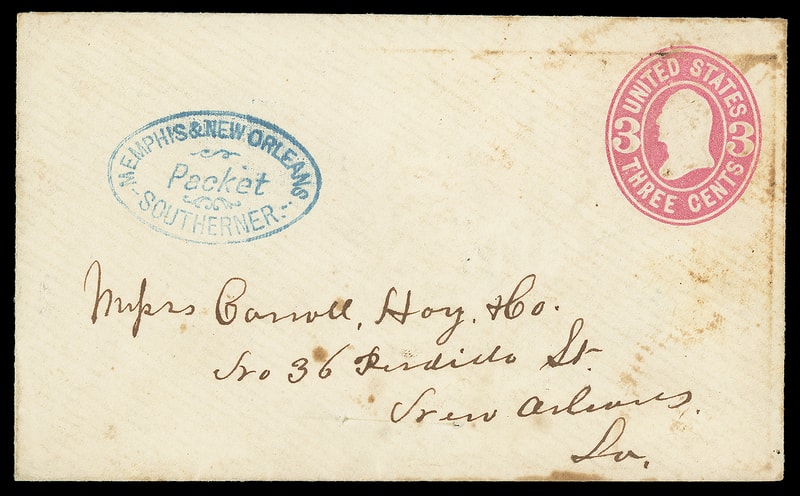 MEMPHIS & NEW ORLEANS
Packet
SOUTHERNER.
UNITED STATES
3 3
THREE CENTS
Messrs Carroll, Hoy, & Co.
No 36 Perdido St.
New Orleans.
La.